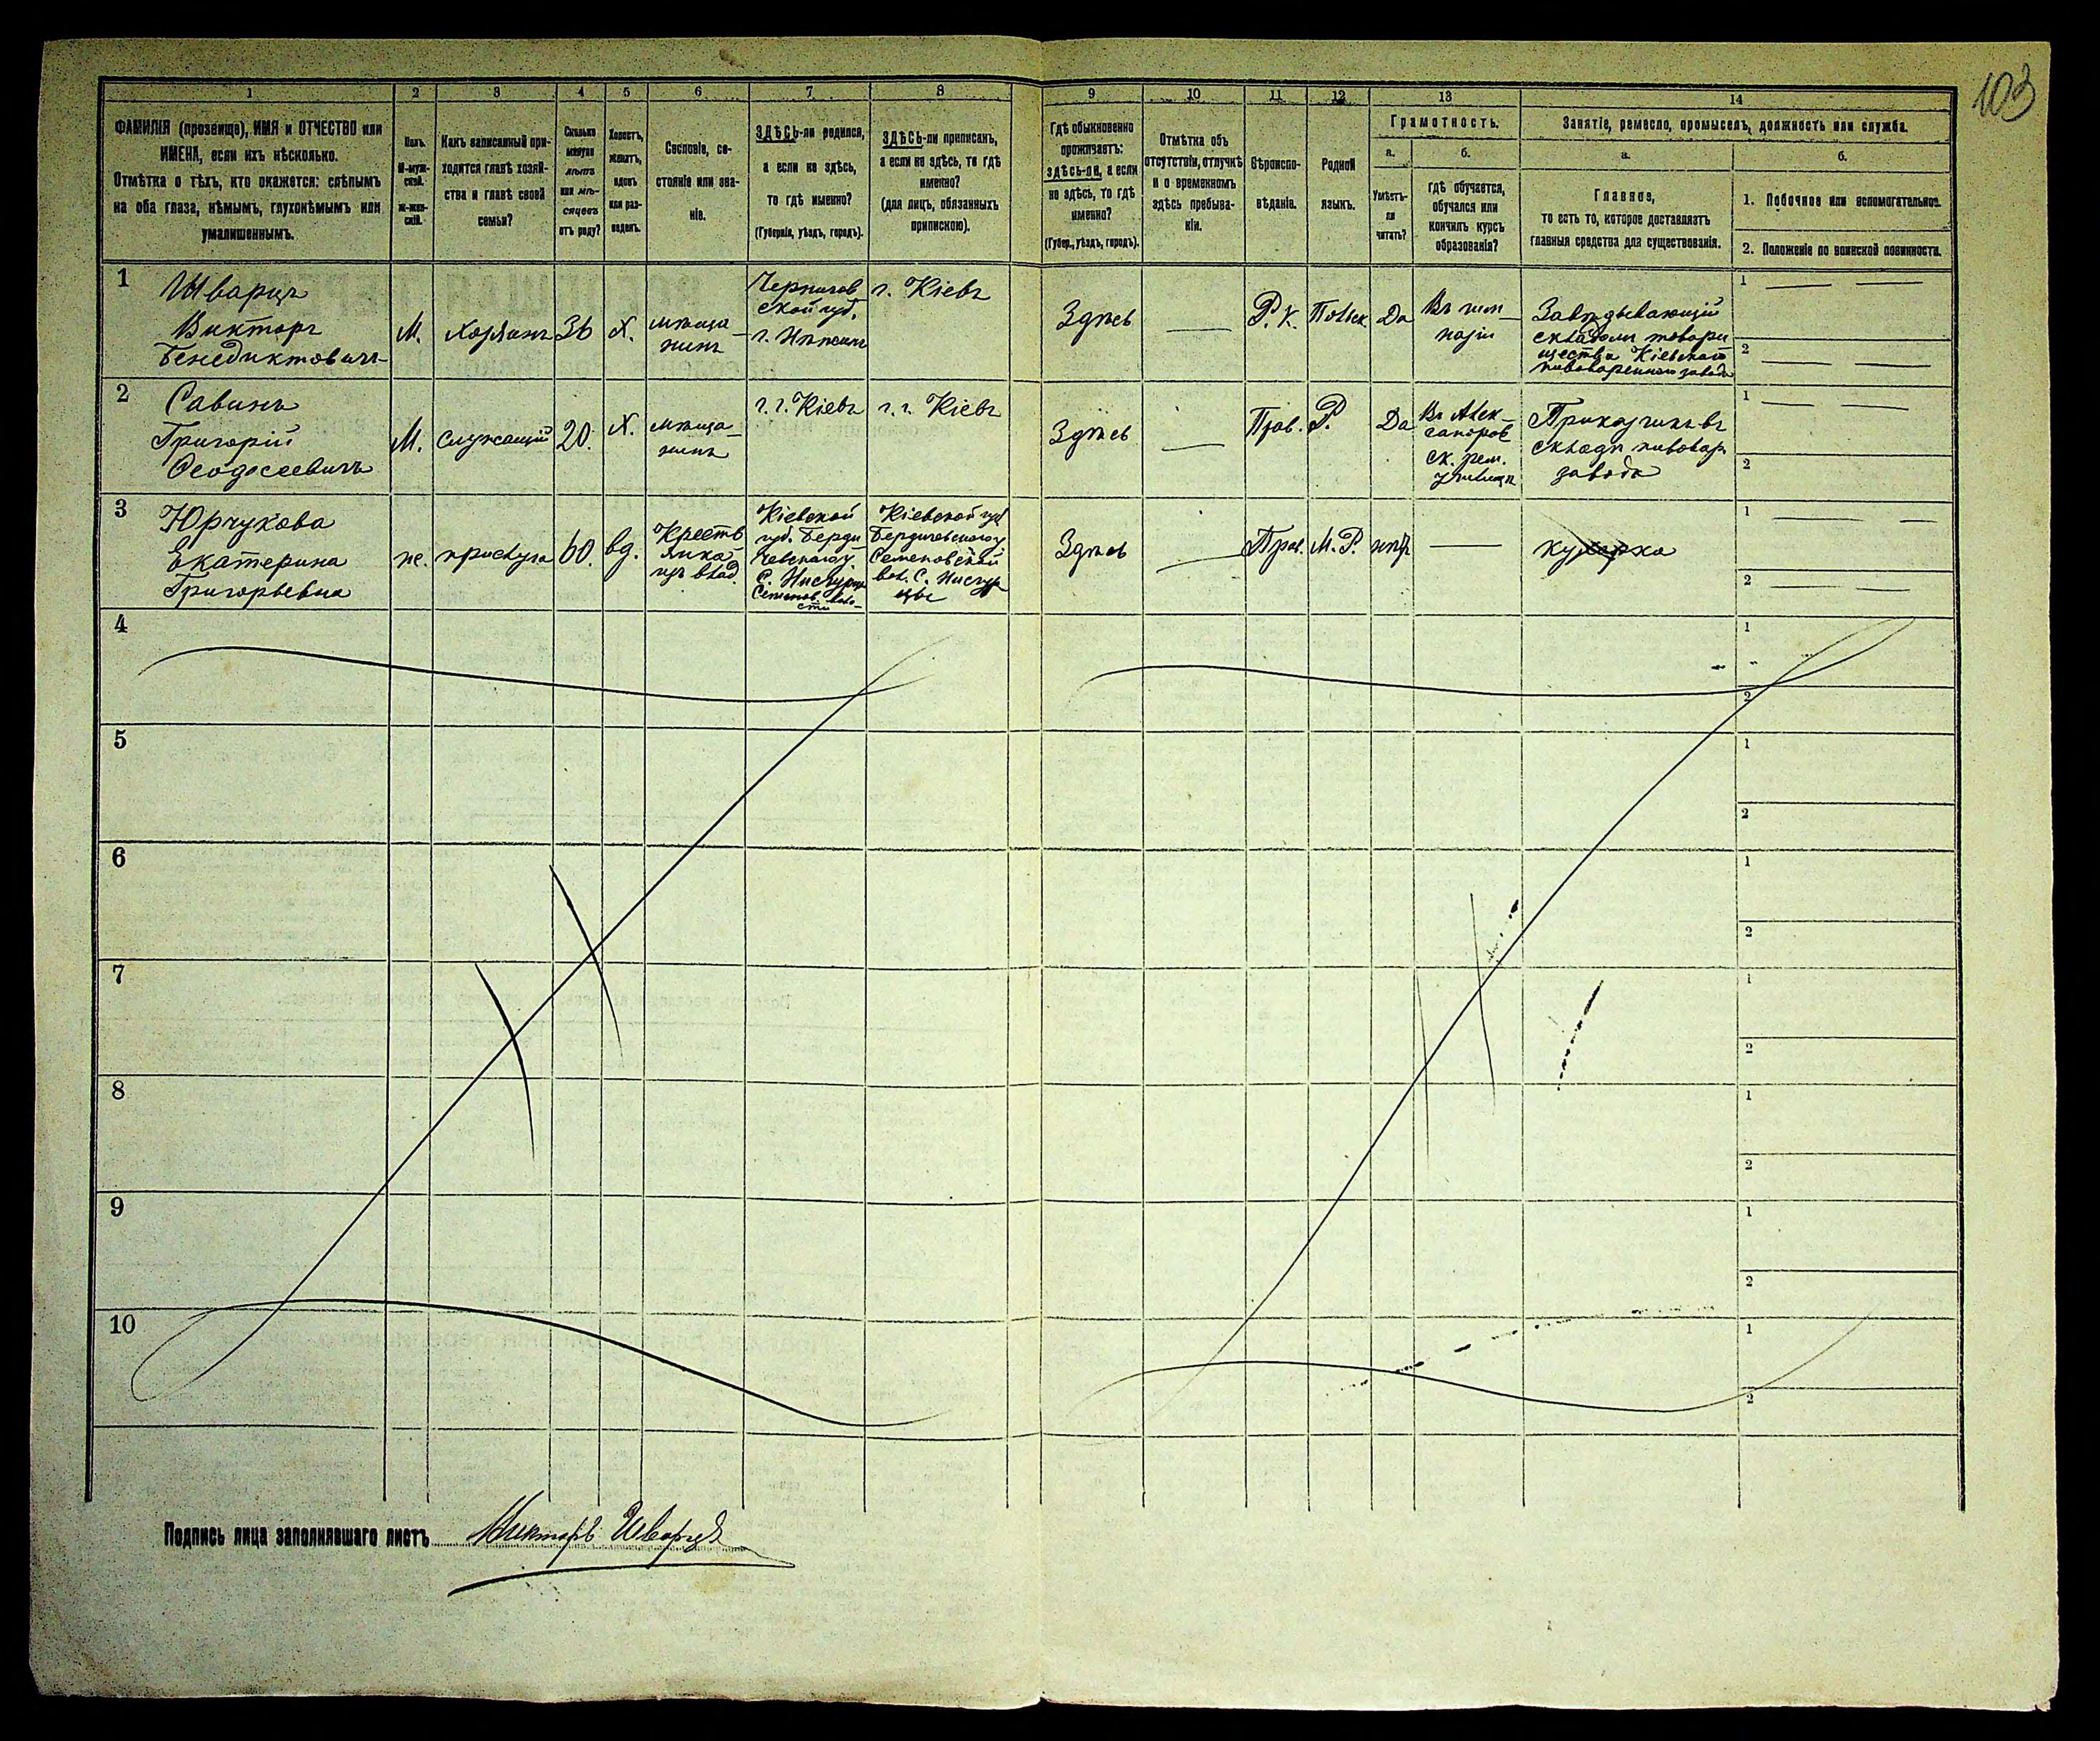 103
1 2 3 4 5 6 7 8 9 10 11 12 13 14
ФАМИЛІЯ (прозвище), ИМЯ и ОТЧЕСТВО или
ИМЕНА, если ихъ нѣсколько.
Отмѣтка о тѣхъ, кто окажется: слѣпымъ
на оба глаза, нѣмымъ, глухонѣмымъ или
умалишеннымъ.
Полъ.
М-муж-
ской.
ж-жен-
скій.
Какъ записанный при-
ходится главѣ хозяй-
ства и главѣ своей
семьи?
Сколько
минуло
лѣтъ
или мѣ-
сяцевъ
отъ роду?
Холостъ,
женатъ,
вдовъ
или раз-
веденъ.
Сословіе, со-
стояніе или зва-
ніе.
ЗДѢСЬ-ли родился,
а если не здѣсь,
то гдѣ именно?
(Губернія, уѣздъ, городъ).
ЗДѢСЬ-ли приписанъ,
а если не здѣсь, то гдѣ
именно?
(для лицъ, обязанныхъ
припискою).
Гдѣ обыкновенно
проживаетъ:
здѣсь-ли, а если
не здѣсь, то гдѣ
именно?
(Губер., уѣздъ, городъ).
Отмѣтка объ
отсутствіи, отлучкѣ
и о временномъ
здѣсь пребыва-
ніи.
Вѣроиспо-
вѣданіе.
Родной
языкъ.
Грамотность.
а.
Умѣетъ-
ли
читать?
б.
гдѣ обучается,
обучался или
кончилъ курсъ
образованія?
Занятіе, ремесло, промыселъ, должность или служба.
а.
Главное,
то есть то, которое доставляетъ
главныя средства для существованія.
б.
1. Побочное или вспомогательное.
2. Положеніе по воинской повинности.
1
Шварцъ
Викторъ
Бенедиктовичъ
М.
хозяинъ
36
Х.
мѣща-
нинъ
Чернигов
ской губ.
г. Нѣжинъ
г. Кіевъ
Здѣсь
Р. К.
Польск
Да
Въ гим-
назіи
Завѣдывающій
складомъ товари
щества Кіевскаго
пивовареннаго завода
1
2
2
Савинъ
Григорій
Ѳеодосеевичъ
М.
служащій
20.
Х.
мѣща-
нинъ
г. г. Кіевъ
г. г. Кіевъ
Здѣсь
Прав.
Р.
Да
Въ Алек-
сандров
ск. рем.
училищѣ
Приказчикъ въ
складѣ пивовар
завода
1
2
3
Юрчукова
Екатерина
Григорьевна
ж.
прислуга
60.
вд.
Крестья
янка
изъ влад.
Кіевской
губ. Берди
чевскаго у.
С. Жидовцы
Семенов. воло-
сти
Кіевской губ
Бердичевскаго у
Семеновской
вол. с.
Здѣсь
Прав.
М. Р.
нѣтъ
кухарка
1
2
4
1
2
5
1
2
6
1
2
7
1
2
8
1
2
9
1
2
10
1
2
Подпись лица заполнявшаго листъ Викторъ Шварцъ